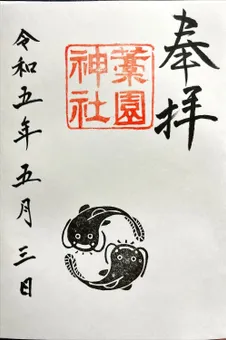 奉拝
藁園神社
令和五年五月三日